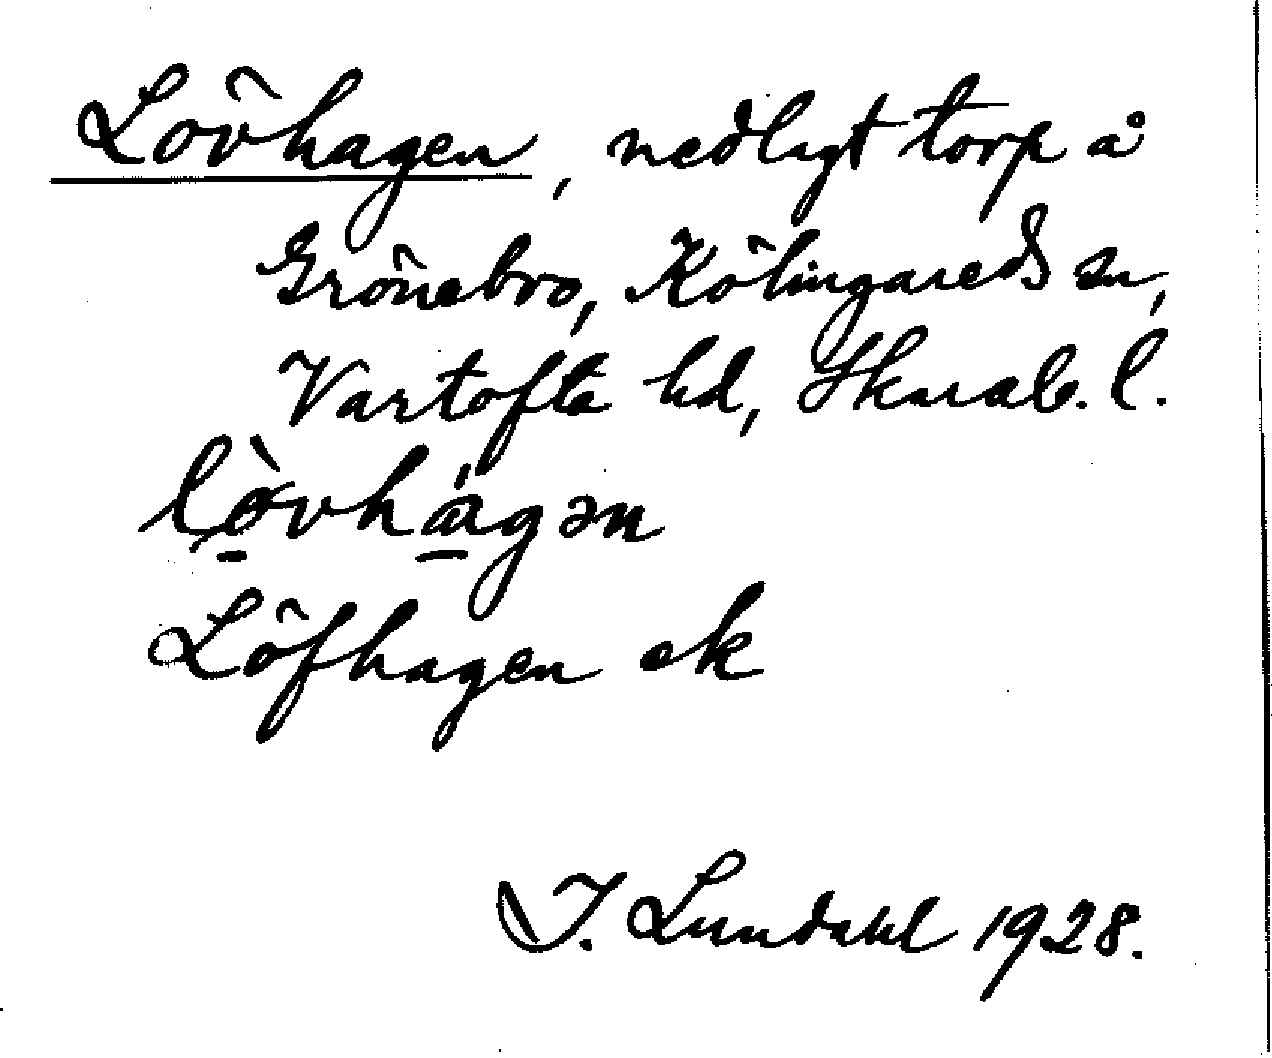 Lövhagen, nedlagt torp å
Grönebro, Kölingareds sn,
Vartofta hd, Skarab. l.
lö̀vhágən
Löfhagen ek
I. Lundahl 1928.